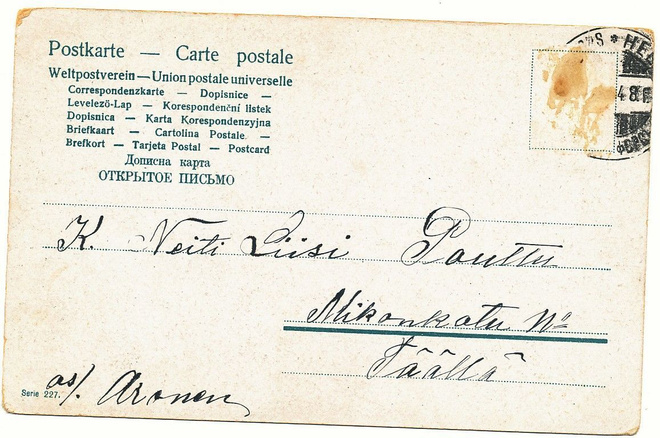 Postkarte — Carte postale
Weltpostverein — Union postale universelle
Correspondenzkarte — Dopisnice —
Levelező-Lap — Korespondenční listek
Dopisnica — Karta Korespondenzyjna
Briefkaart — Cartolina Postale —
Brefkort — Tarjeta Postal — Postcard
Дописна карта
ОТКРЫТОЕ ПИСЬМО
K. Neiti Liisi Pouttu
Mikonkatu No
Täällä
as/. Aronen
Serie 227.